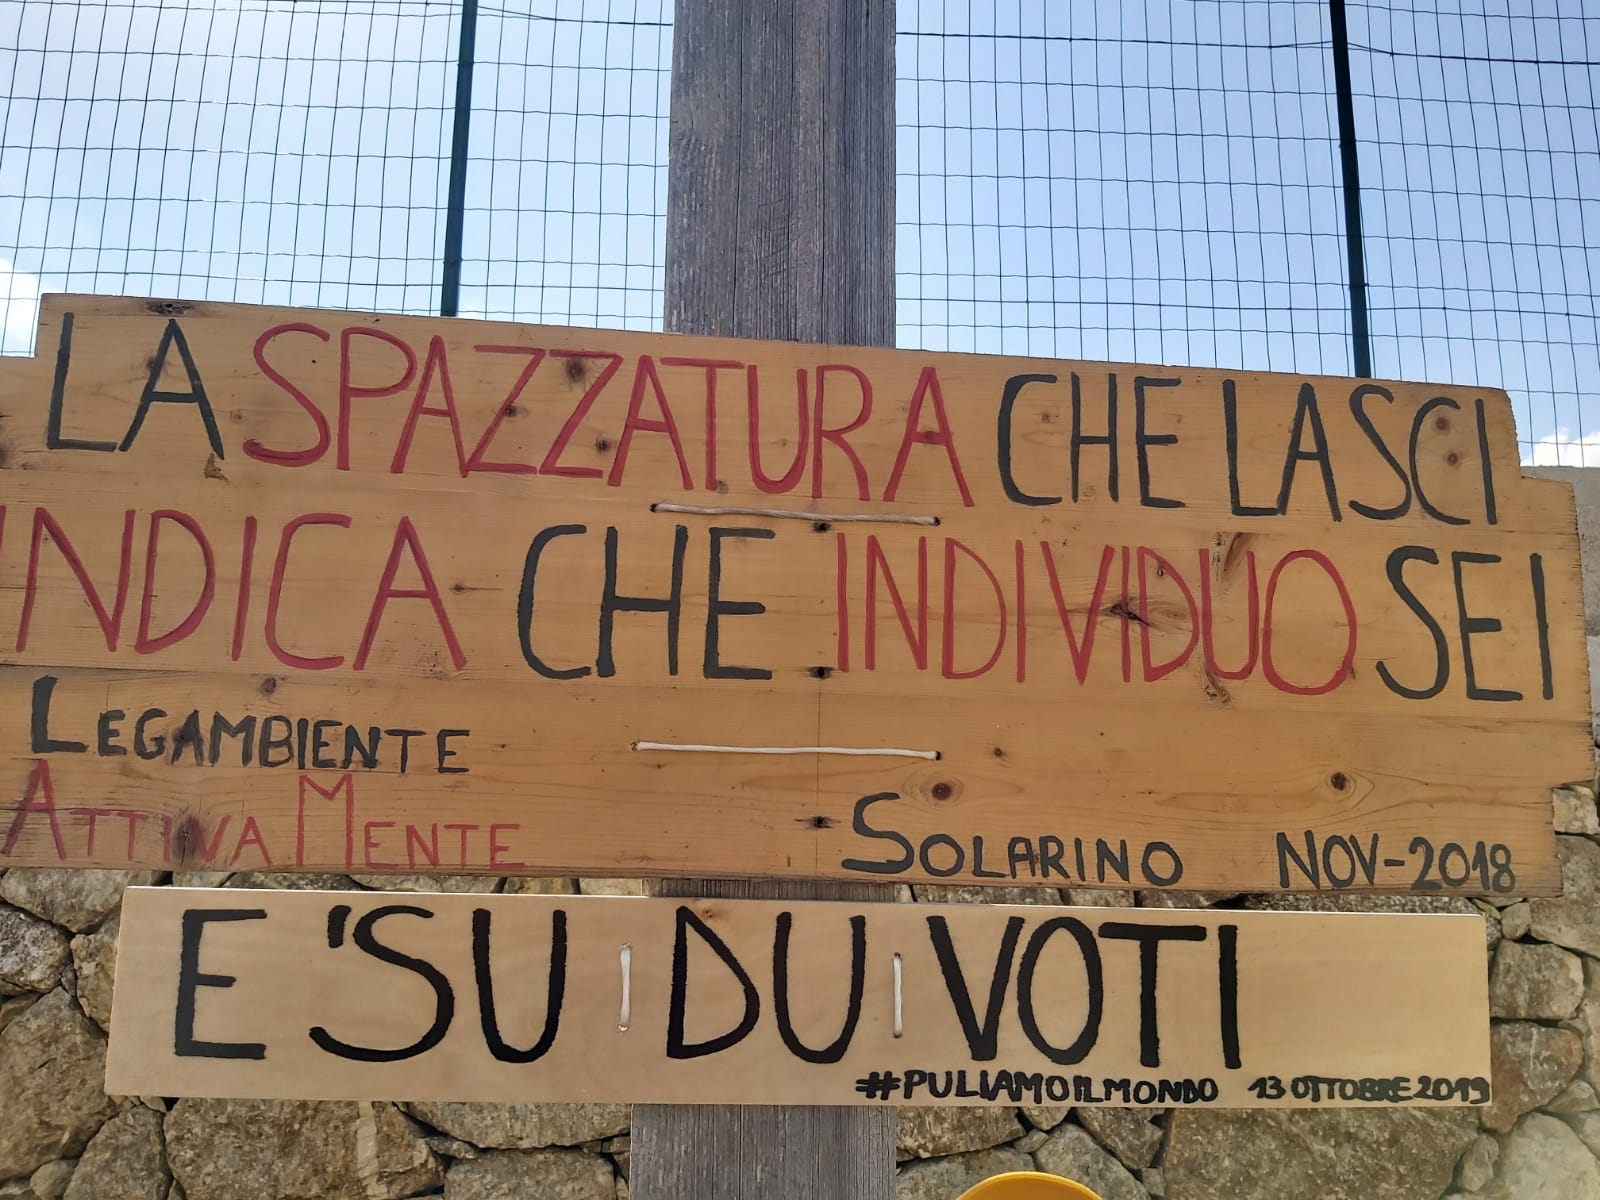 LA SPAZZATURA CHE LASCI
INDICA CHE INDIVIDUO SEI
LEGAMBIENTE
ATTIVAMENTE
SOLARINO NOV-2018
E 'SU DU VOTI
#PULIAMOILMONDO 13 OTTOBRE 2019